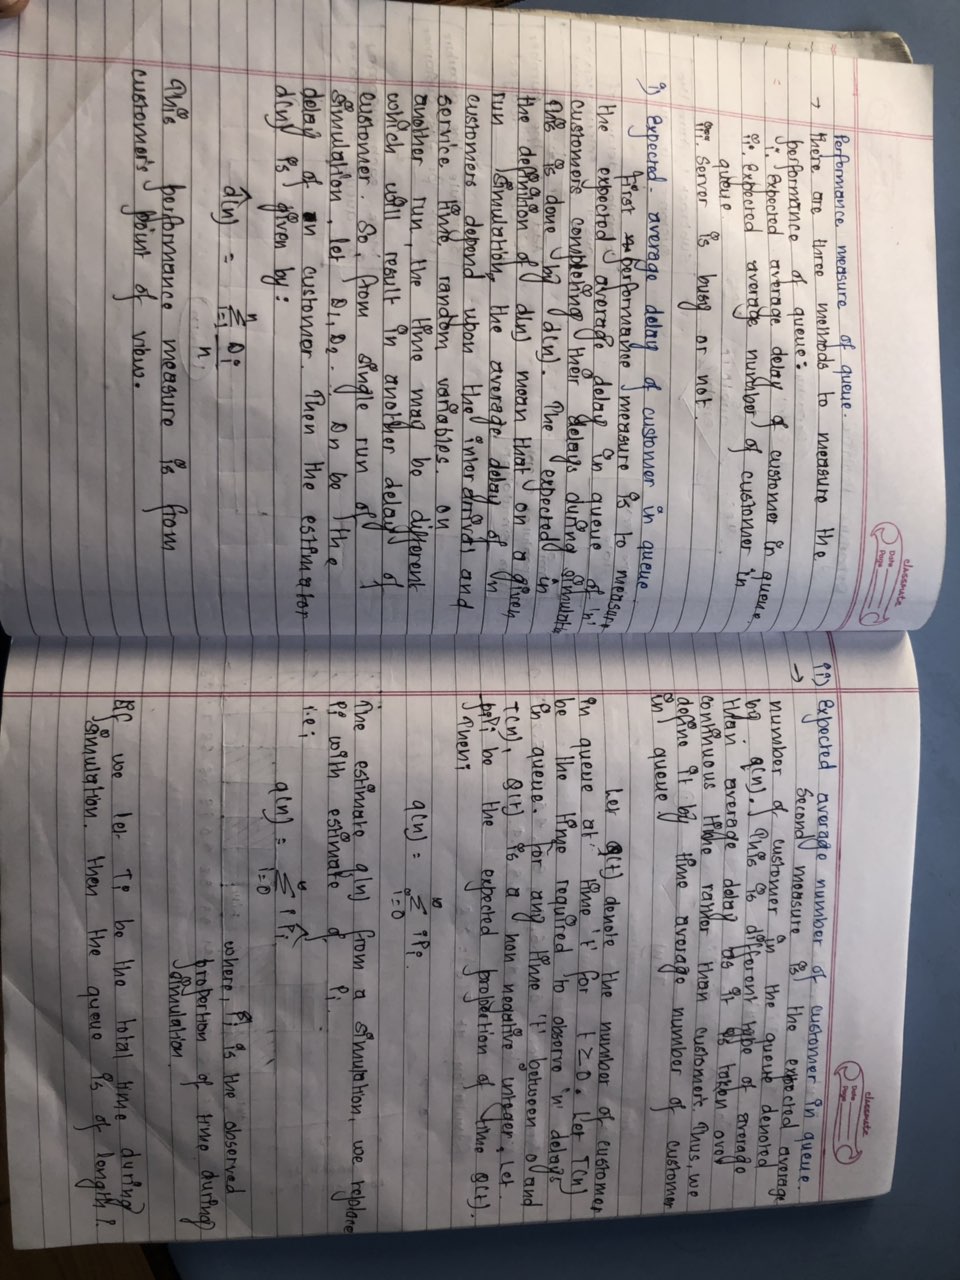 classmate
Date
Page
Performance measure of queue.
→ there are three methods to measure the
performance of queue:
i. expected average delay of customer in queue,
ii. expected average number of customer in
queue
iii. server is busy or not.
i) expected average delay of customer in queue
first performance measure is to measure
the expected average delay in queue of 'n'
customers completing their delays during simulatn
This is done by d(n). The expected in
the definition of d(n) mean that on a given
run simulation, the average delay of 'n'
customers depend upon the interarrival and
service time random variables. on
another run, the time may be different
which will result in another delay of
customer. So, from single run of 1
simulation, let D1, D2.. Dn be the
delay of n customer. Then the estimator
d(n) is given by:
d̂(n) = n∑i=1 Di / n,
This performance measure is from
customer's point of view.
classmate
Date
Page
ii) Expected average number of customer in queue.
→ Second measure is the expected average
number of customer in the queue denoted
by q(n). This is different type of average
than average delay as it is taken over
continuous time rather than customers. Thus, we
define it by time average number of customer
in queue
Let Q(t) denote the number of customer
in queue at time 't' for t ≥ 0. Let T(n)
be the time required to observe 'n' delays
in queue. For any time 't' between 0 and
T(n), Q(t) is a non negative integer. Let
Pi be the expected proportion of time Q(t).
Then;
q(n) = ∞∑i=0 iPi.
The estimate q(n) from a simulation, we replace
Pi with estimate of Pi.
i.e;
q(n) = ∞∑i=0 i P̂i
where, P̂i is the observed
proportion of time during
simulation.
If we let Ti be the total time during
simulation. then the queue is of length i